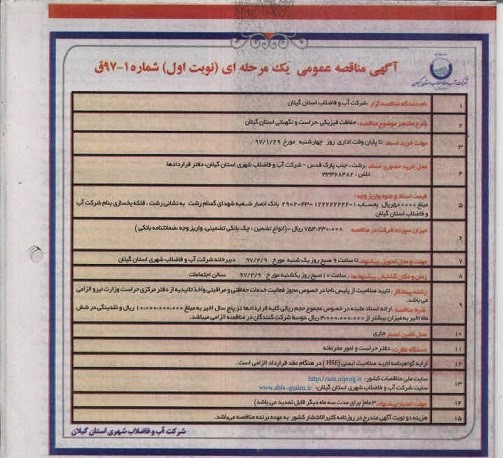 آگهی مناقصه عمومی یک مرحله ای (نوبت اول) شماره ۱-۹۷ق
شرکت آب و فاضلاب استان گیلان
۱ نام دستگاه مناقصه گزار: شرکت آب و فاضلاب استان گیلان
۲ شرح مختصر موضوع مناقصه: حفاظت فیزیکی، حراست و نگهبانی استان گیلان
۳ مهلت خرید اسناد: تا پایان وقت اداری روز چهارشنبه مورخ ۹۷/۱/۲۹
۴ محل خرید حضوری اسناد: رشت، جنب پارک قدس - شرکت آب و فاضلاب شهری استان گیلان، دفتر قراردادها
تلفن: ۳۳۳۶۸۴۸۲
۵ قیمت اسناد و نحوه واریز وجه:
مبلغ ۵۰۰۰۰۰ ریال بانک انصار شعبه شهدای گمنام رشت به نشانی رشت، فلکه یخسازی بنام شرکت آب
و فاضلاب استان گیلان
۶ میزان سپرده شرکت در مناقصه
ریال - (انواع تضمین: چک بانکی تضمینی، واریز وجه، ضمانتنامه بانکی)
۷ مهلت و محل تحویل پیشنهادها: تا ساعت ۹ صبح روز یک شنبه مورخ ۹۷/۲/۹ دبیرخانه شرکت آب و فاضلاب شهری استان گیلان
۸ زمان و مکان گشایش پیشنهادها: ساعت ۱۰ صبح روز یکشنبه مورخ ۹۷/۲/۹ سالن اجتماعات
۹ رشته پیمانکار: تایید صلاحیت از پلیس ناجا در خصوص مجوز فعالیت خدمات حفاظتی و مراقبتی واخذ تائیدیه از دفتر مرکزی حراست وزارت نیرو الزامی
می باشد.
شرط مناقصه: ارائه اسناد مثبته در خصوص مجموع حجم ریالی کلیه قراردادها در پنج سال اخیر به مبلغ ریال و نقدینگی در شش
ماه اخیر به میزان بیشتر از ریال توسط شرکت کنندگان در مناقصه الزامی میباشد.
۱۰ محل تامین اعتبار: جاری
۱۱ دستگاه نظارت: دفتر حراست و امور محرمانه
۱۲ ارایه گواهینامه تایید صلاحیت ایمنی (HSE) در هنگام عقد قرارداد الزامی است.
۱۳ سایت ملی مناقصات کشور: http://iets.mporg.ir
سایت شرکت آب و فاضلاب شهری استان گیلان: www.abfa-guilan.ir
۱۴ مدت اعتبار پیشنهاد: ۳ ماه (برای مدت سه ماه دیگر قابل تمدید می باشد)
۱۵ هزینه دو نوبت آگهی مندرج در روزنامه کثیرالانتشار کشور به عهده برنده مناقصه می‌باشد.
شرکت آب و فاضلاب شهری استان گیلان